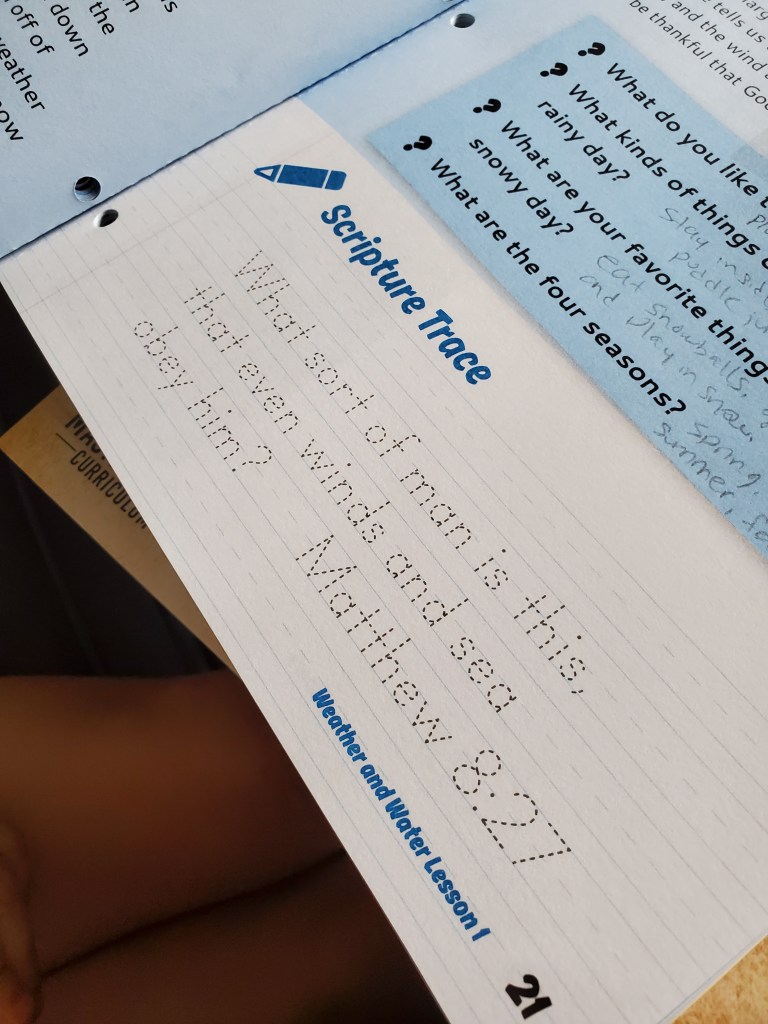 down
the
off of
weather
tells us
and the wind
be thankful that
? What do you like
? What kinds of things
rainy day?
Stay
puddle
? What are your favorite things
snowy day?
eat snowballs,
and play in snow.
? What are the four seasons?
spring,
summer,
Scripture Trace
What sort of man is this,
that even winds and sea
obey him?
Matthew 8:27
Weather and Water Lesson 1
21
CURRICULUM